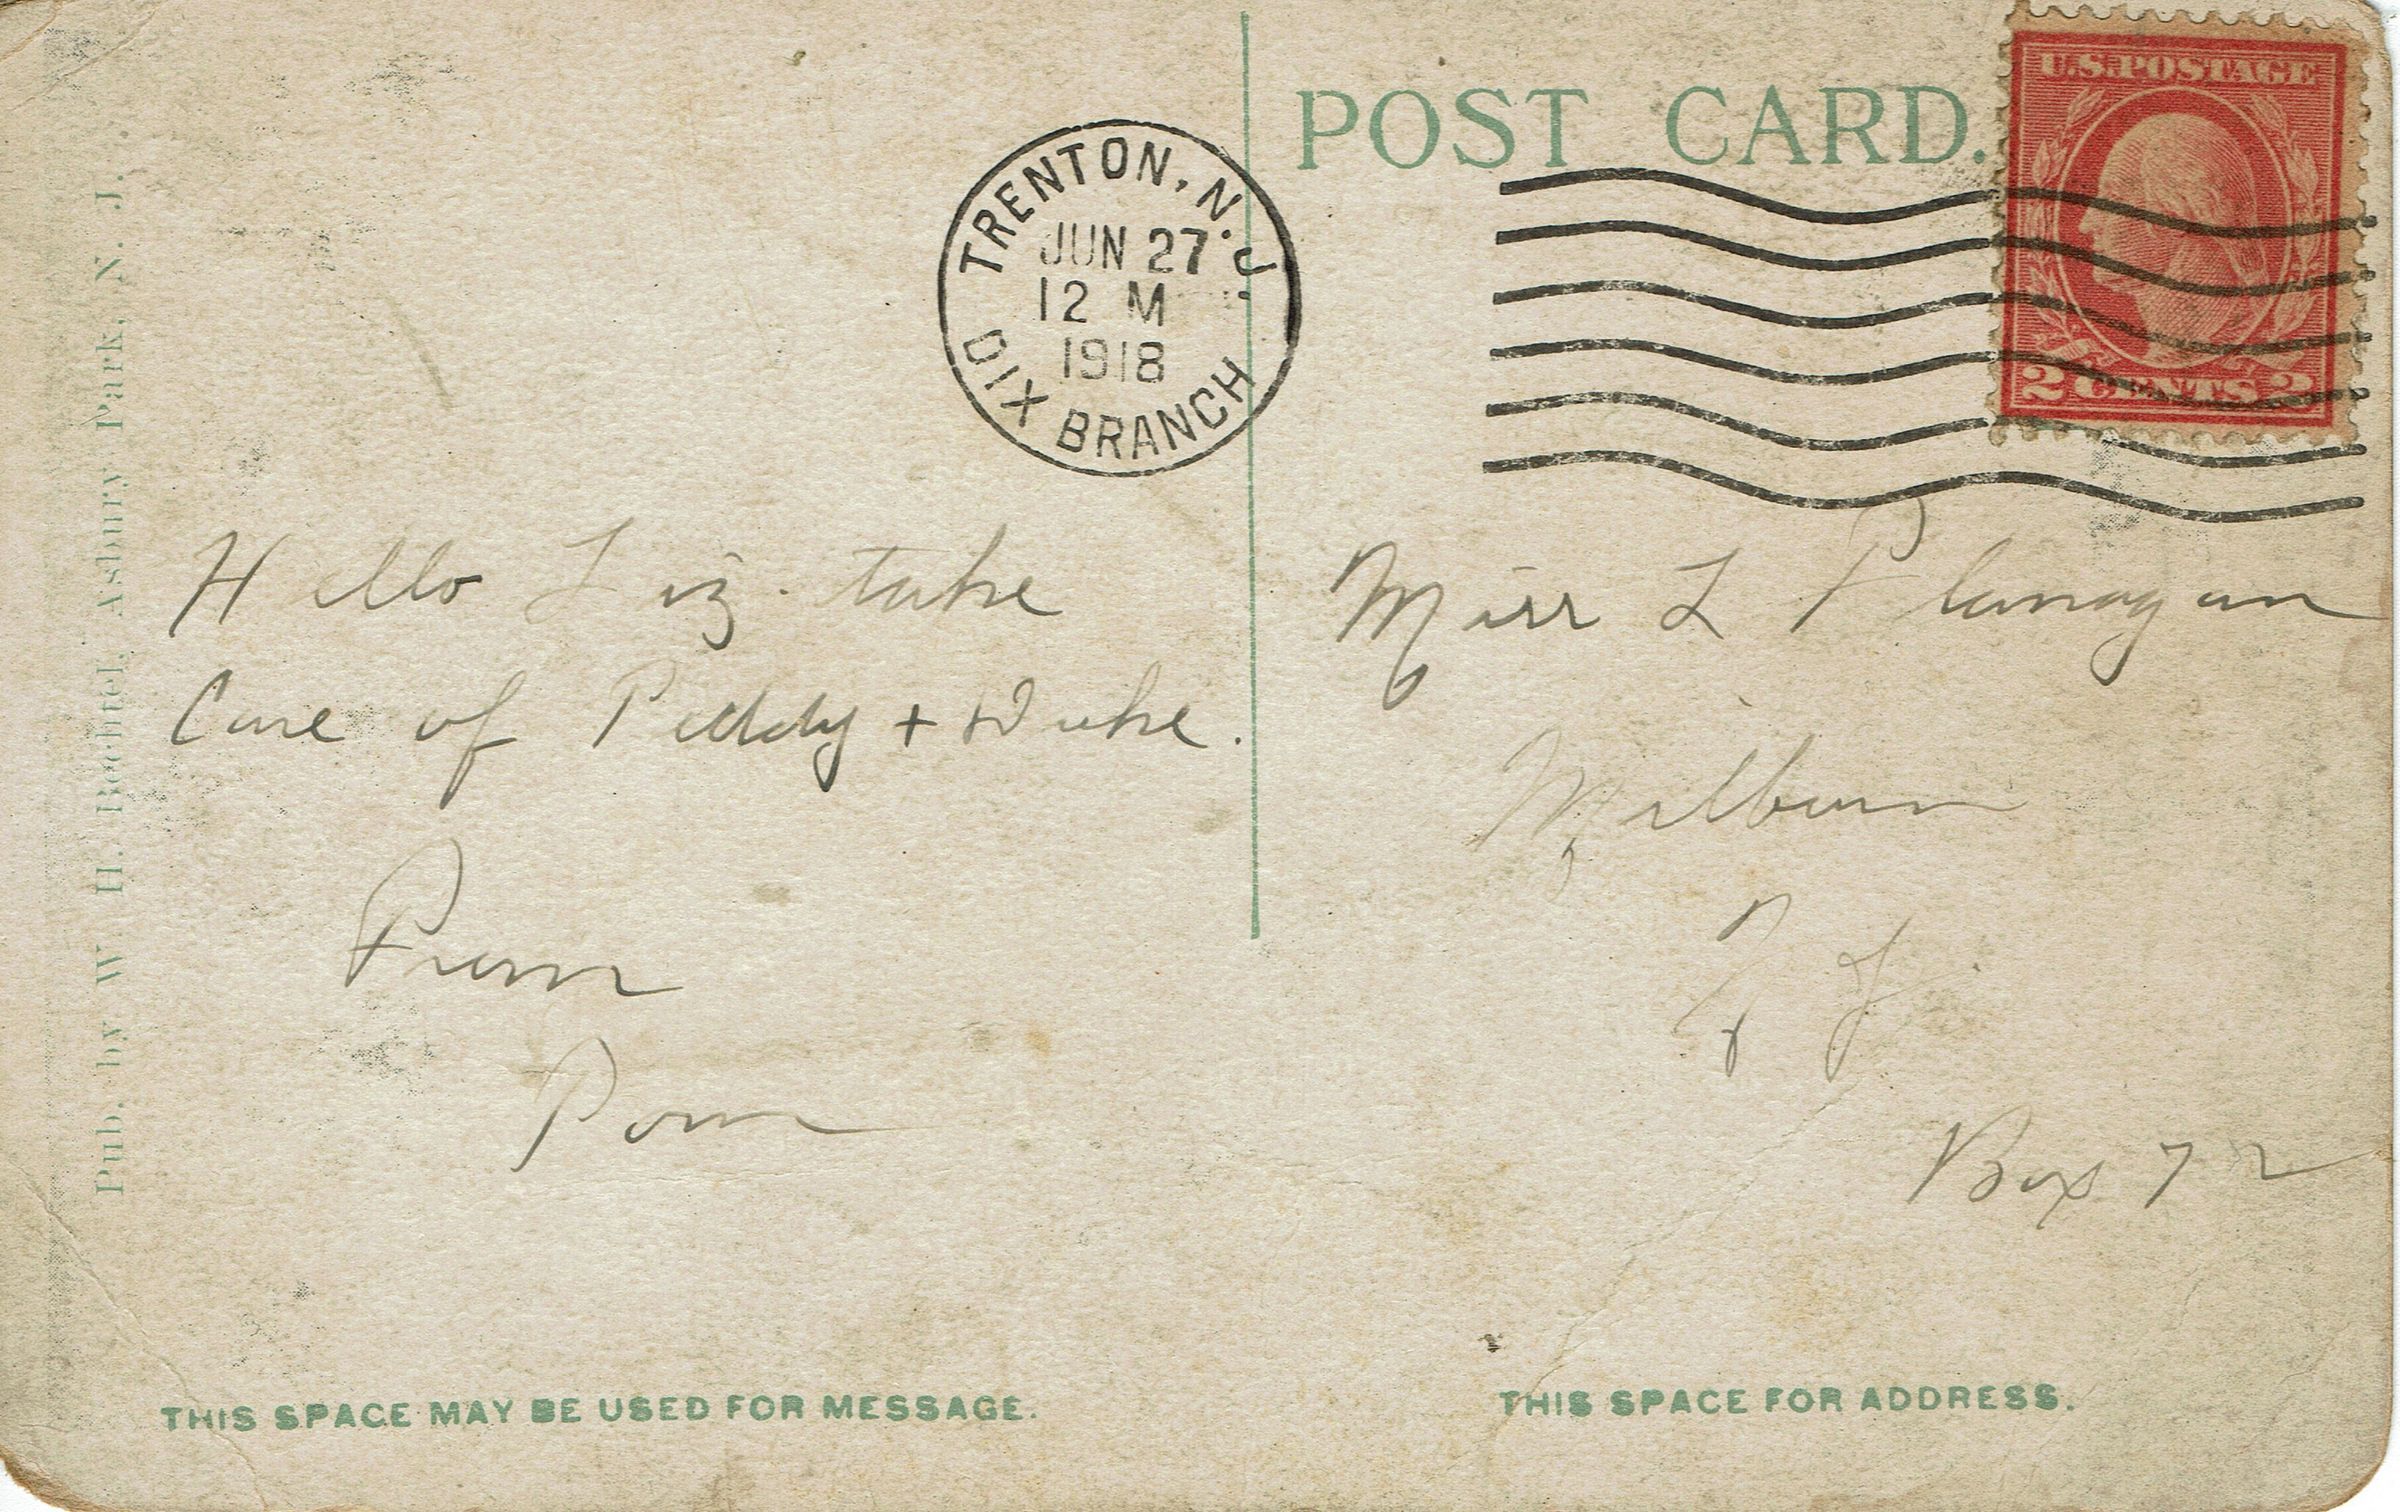 Pub. by W. H. Bechtel, Asbury Park, N. J.
POST CARD.
U.S. POSTAGE
2 CENTS 2
TRENTON, N.J.
JUN 27
12 M
1918
DIX BRANCH
Hello Liz. take
Care of Peddy + Duke.
From
Pom
Miss L Flanagan
Milburn
N J.
Box 72
THIS SPACE MAY BE USED FOR MESSAGE.
THIS SPACE FOR ADDRESS.